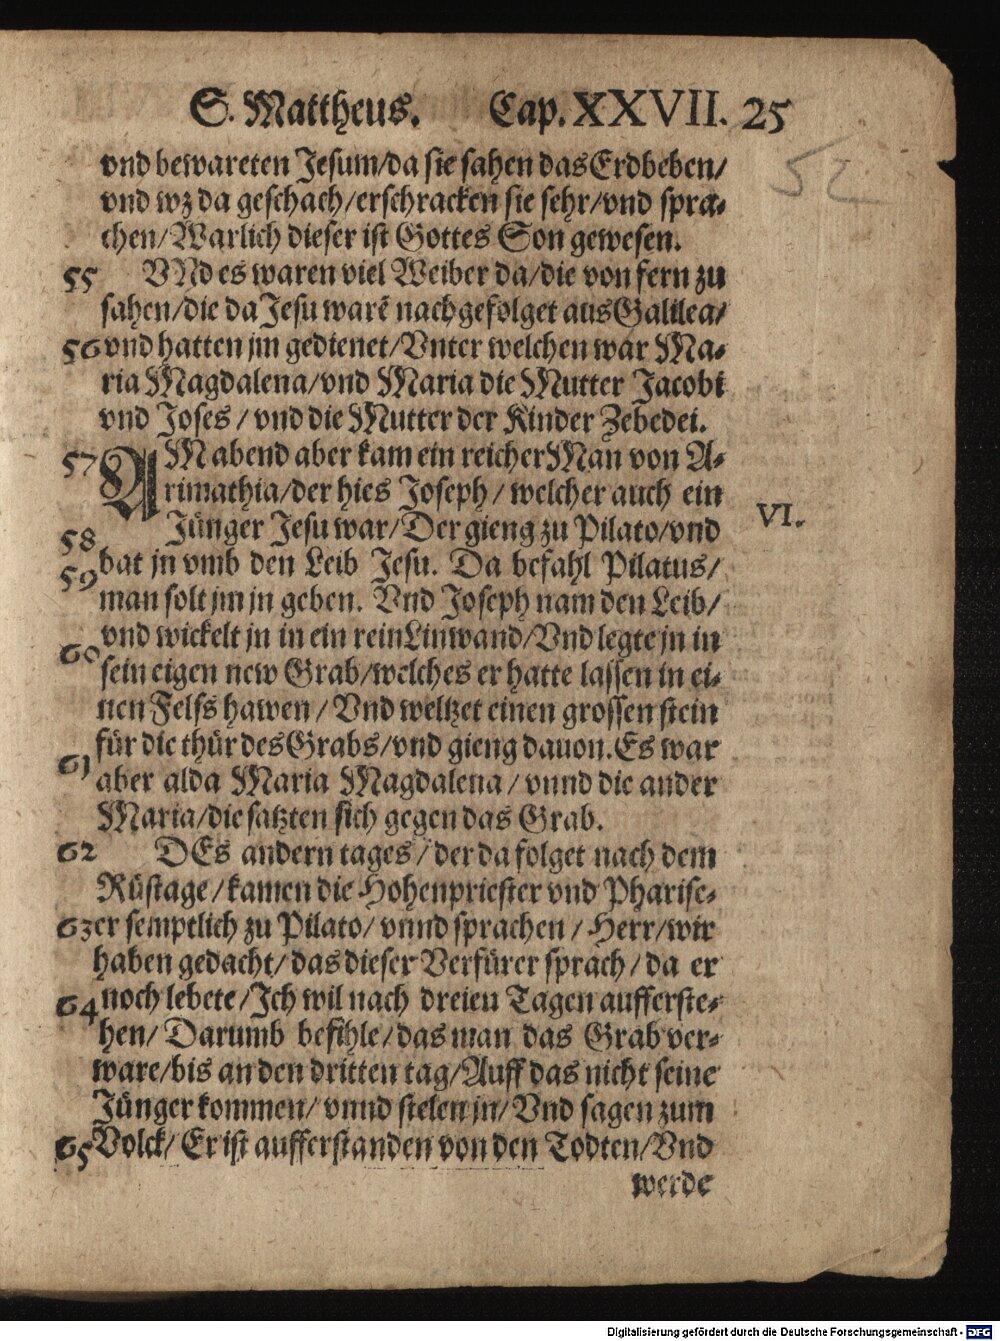 S. Mattheus. Cap. XXVII. 25
52
vnd bewareten Jesum/da sie sahen das Erdbeben/
vnd wz da geschach/erschracken sie sehr/vnd spra-
chen/Warlich dieser ist Gottes Son gewesen.
55 VNd es waren viel Weiber da/die von fern zu
sahen/die da Jesu warẽ nachgefolget aus Galilea/
56 vnd hatten jm gedienet/Vnter welchen war Ma-
ria Magdalena/vnd Maria die Mutter Jacobi
vnd Joses/vnd die Mutter der Kinder Zebedei.
57 AM abend aber kam ein reicher Man von A-
rimathia/der hies Joseph/welcher auch ein
VI.
58 Jünger Jesu war/Der gieng zu Pilato/vnd
59 bat jn vmb den Leib Jesu. Da befahl Pilatus/
man solt jm jn geben. Vnd Joseph nam den Leib/
60 vnd wickelt jn in ein rein Linwand/Vnd legte jn in
sein eigen new Grab/welches er hatte lassen in ei-
nen Felss hawen/Vnd weltzet einen grossen stein
61 für die thür des Grabs/vnd gieng dauon. Es war
aber alda Maria Magdalena/vnnd die ander
Maria/die satzten sich gegen das Grab.
62 DEs andern tages/der da folget nach dem
Rüstage/kamen die Hohenpriester vnd Pharise-
63 er semptlich zu Pilato/vnnd sprachen/Herr/wir
haben gedacht/das dieser Verfürer sprach/da er
64 noch lebete/Ich wil nach dreien Tagen aufferste-
hen/Darumb befihle/das man das Grab ver-
ware/bis an den dritten tag/Auff das nicht seine
Jünger kommen/vnnd stelen jn/Vnd sagen zum
65 Volck/Er ist aufferstanden von den Todten/Vnd
werde
Digitalisierung gefördert durch die Deutsche Forschungsgemeinschaft - DFG